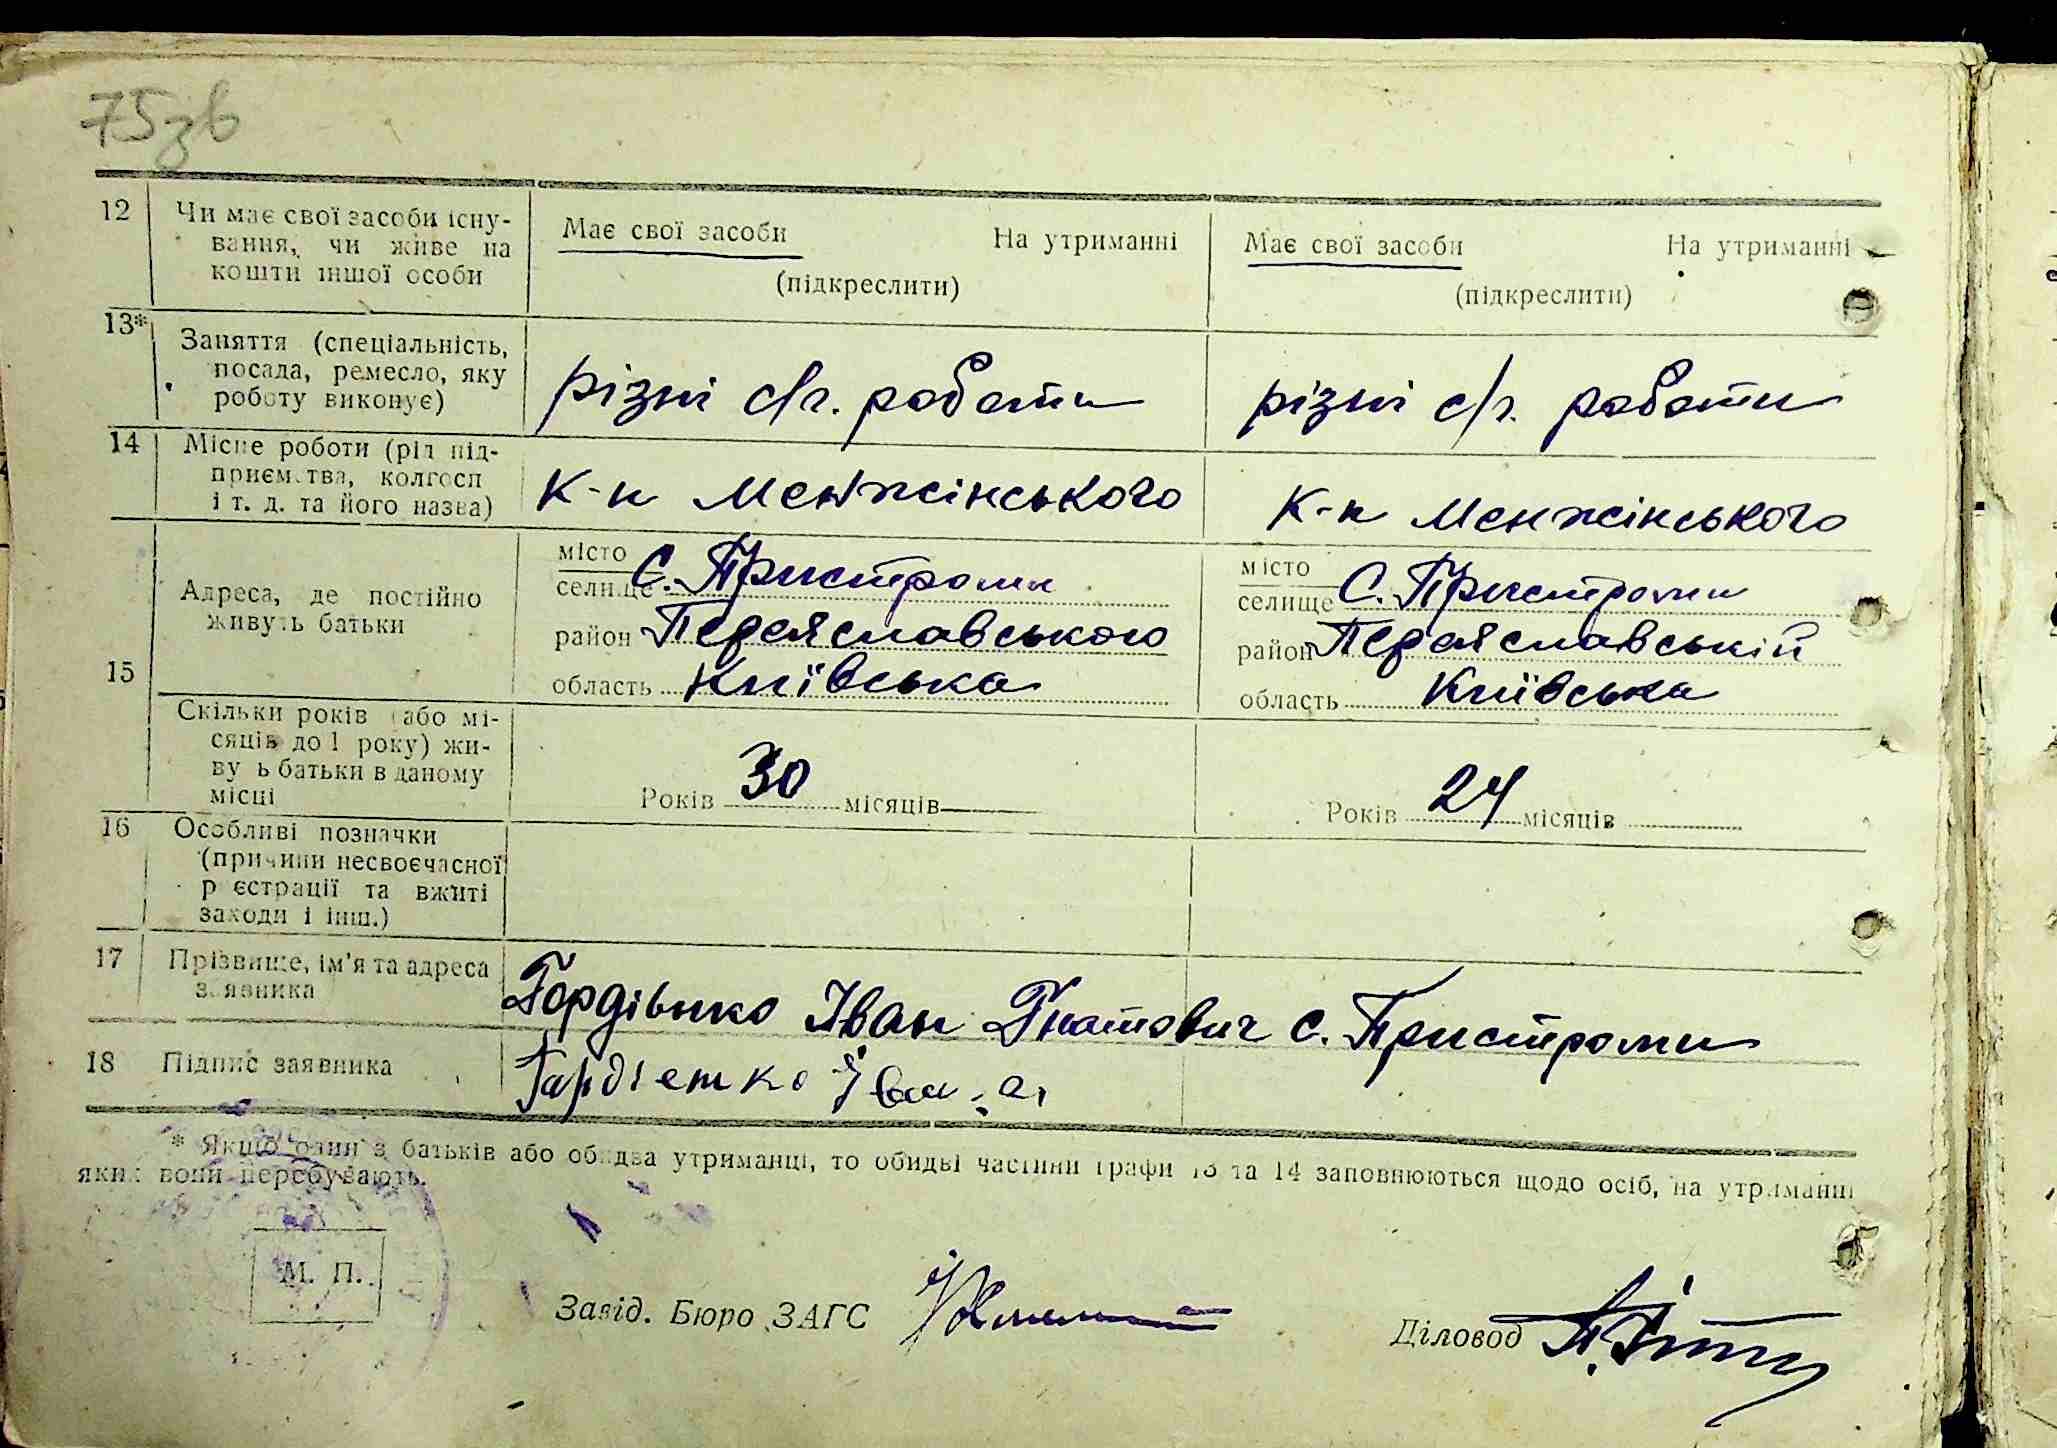 75зв
12 Чи має свої засоби існу-
вання, чи живе на
кошти іншої особи
Має свої засоби На утриманні
(підкреслити)
Має свої засоби На утриманні
(підкреслити)
13* Заняття (спеціальність,
посада, ремесло, яку
роботу виконує)
різні с/г. роботи
різні с/г. роботи
14 Місце роботи (рід під-
приємства, колгосп
і т. д. та його назва)
К-п Менжінського
К-п Менжінського
15 Адреса, де постійно
живуть батьки
місто
селище С. Пристроми
район Переяславського
область Київська
місто
селище С. Пристроми
район Переяславській
область Київська
Скільки років (або мі-
сяців до 1 року) жи-
ву ь батьки в даному
місці
Років 30 місяців
Років 24 місяців
16 Особливі позначки
(причини несвоєчасної
р єстрації та вжиті
заходи і інш.)
17 Прізвище, ім'я та адреса
заявника
Гордієнко Іван Гнатович с. Пристроми
18 Підпис заявника
Гордієнко Іван
* Якщо один з батьків або обидва утриманці, то обидві частини графи 13 та 14 заповнюються щодо осіб, на утриманні
яких вони перебувають.
М. П.
Завід. Бюро ЗАГС
Діловод